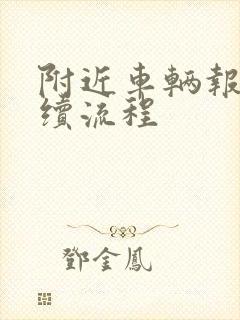 附近車輌報
續流程
鄧金鳳